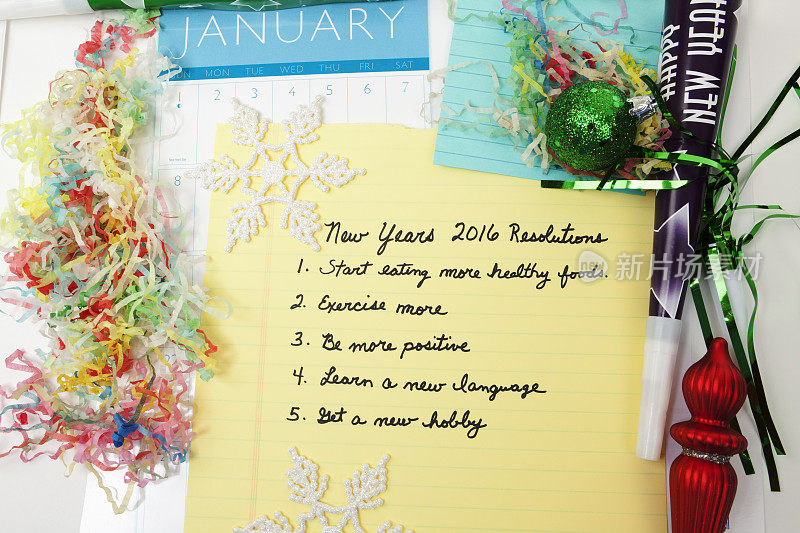 JANUARY
SUN MON TUE WED THU FRI SAT
1 2 3 4 5 6 7
8
HAPPY
NEW YEAR
New Years 2016 Resolutions
1. Start eating more healthy foods.
2. Exercise more
3. Be more positive
4. Learn a new language
5. Get a new hobby
新片场